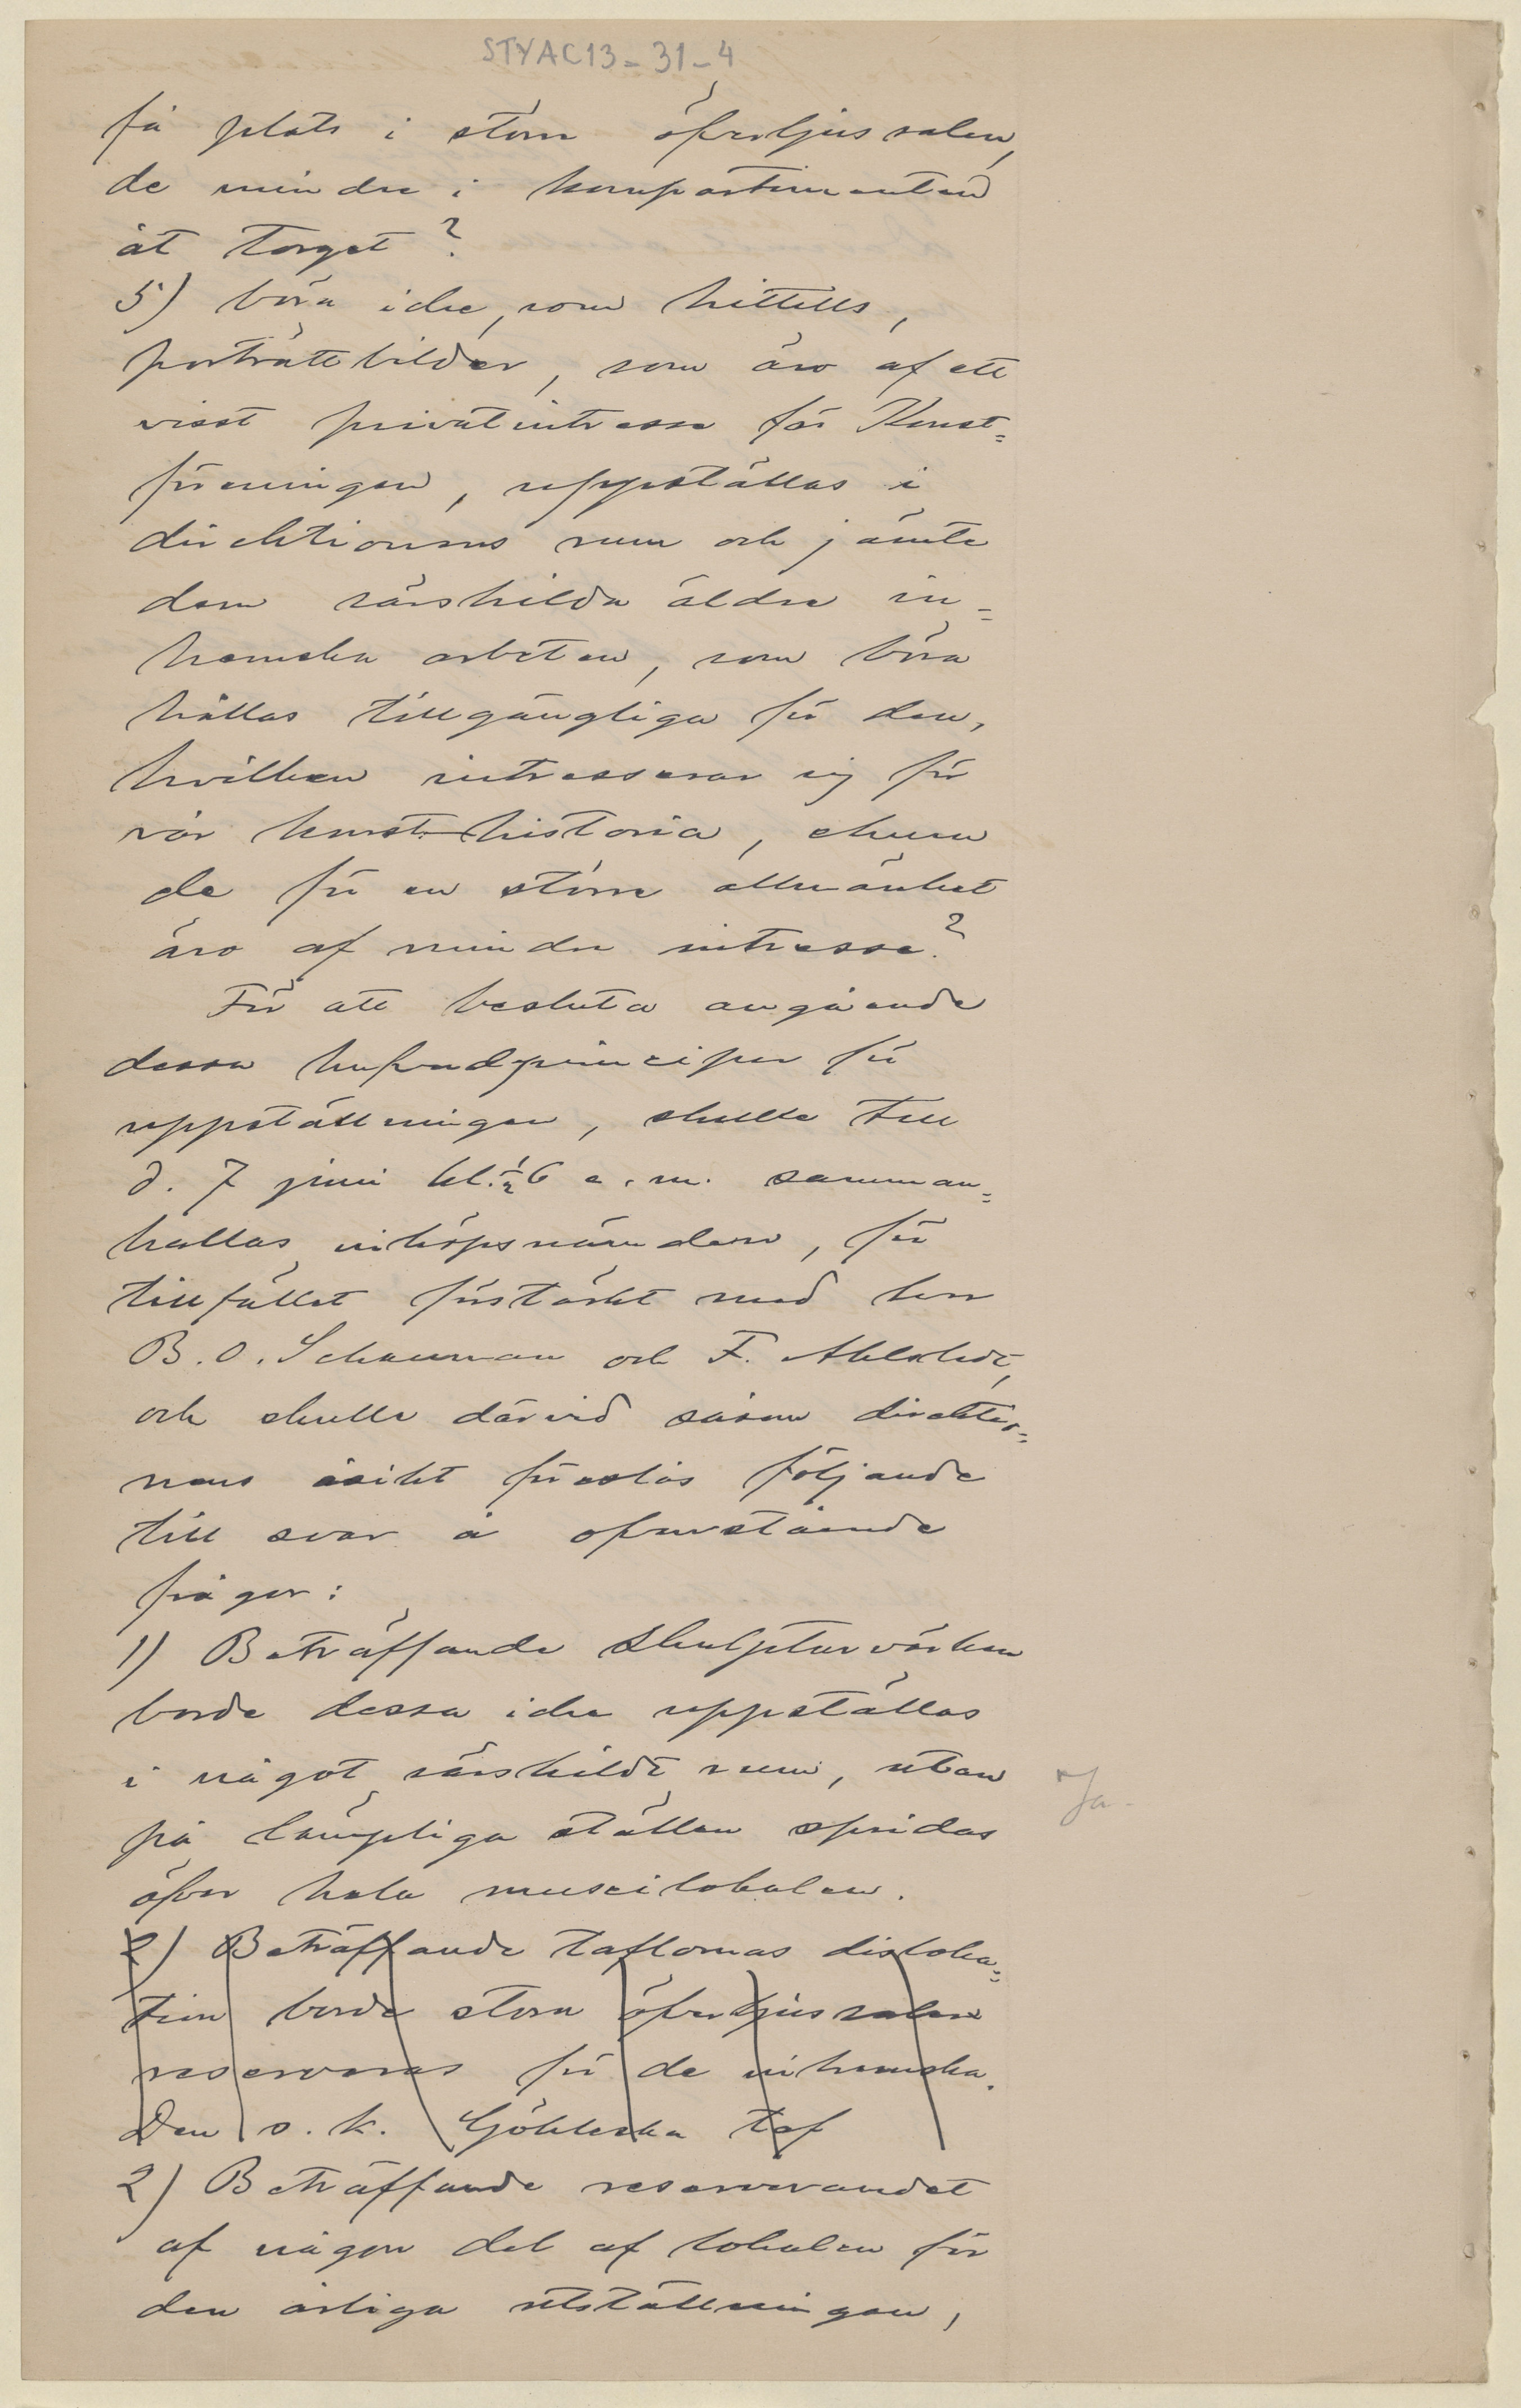 STYAC13-31-4
få plats i stora öfverljussalen,
de mindre i kompartimenten
åt torget?
5) böra icke, som hittills,
porträttbilder, som äro af ett
visst privatintresse för Konst-
föreningen, uppställas i
direktionens rum och jämte
dem särskilda äldre in-
hemska arbeten, som böra
hållas tillgängliga för den,
hvilken intresserar sig för
vår konsthistoria, ehuru
de för en större allmänhet
äro af mindre intresse?
För att besluta angående
dessa hufvudprinciper för
uppställningen, skulle till
d. 7 juni kl. ½ 6 e.m. samman-
kallas inköpsnämnden, för
tillfället förstärkt med herr
B. O. Schauman och F. Ahlstedt,
och skulle därvid såsom direktio-
nens åsikt föreslås följande
till svar å ofvanstående
frågor:
1) Beträffande skulpturvärken
borde dessa icke uppställas
i något särskildt rum, utan
Ja.
på lämpliga ställen spridas
öfver hela museilokalen.
2) Beträffande taflornas disloka-
tion borde stora öfverljussalen
reserveras för de inhemska.
Den s. k. Göhleska taf
2) Beträffande reserverandet
af någon del af lokalen för
den årliga utställningen,